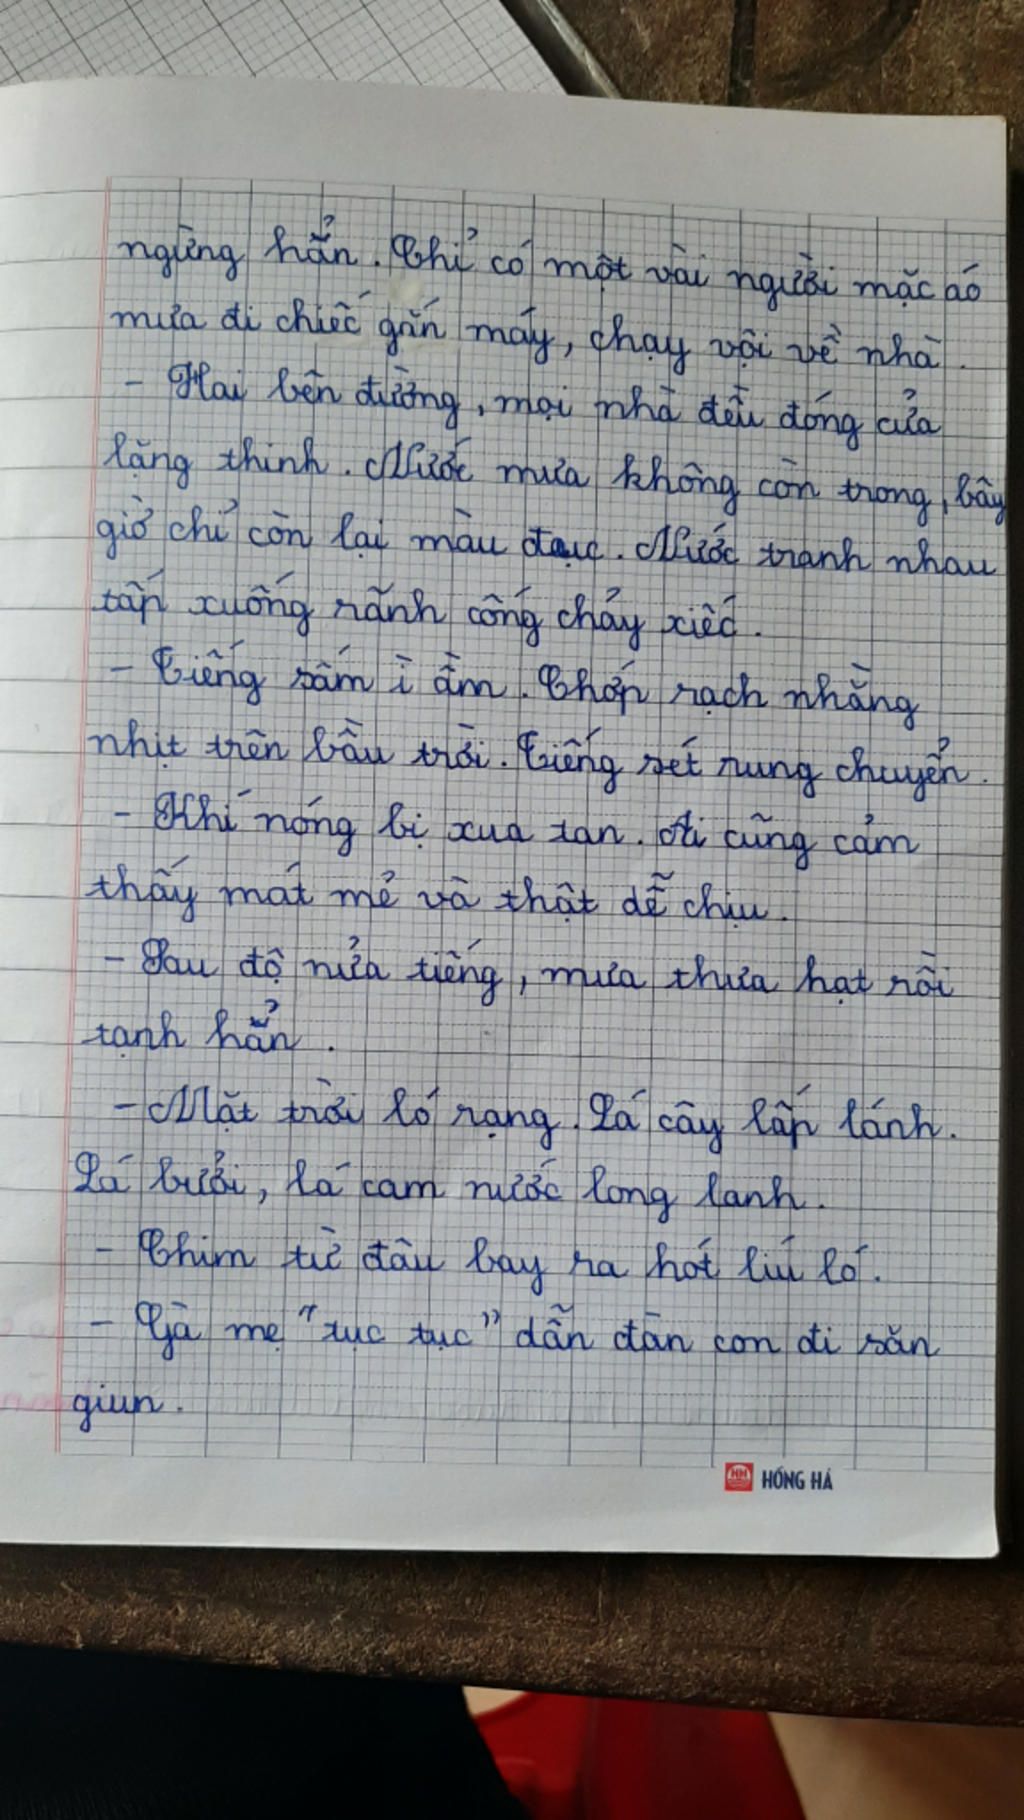 ngừng hẳn. Chỉ có một vài người mặc áo
mưa đi chiếc gắn máy, chạy vội về nhà.
- Hai bên đường, mọi nhà đều đóng cửa
lặng thinh. Nước mưa không còn trong, bây
giờ chỉ còn lại màu đục. Nước tranh nhau
tấp xuống rãnh cống chảy xiếc.
- Tiếng sấm ì ầm. Chớp rạch nhằng
nhịt trên bầu trời. Tiếng sét rung chuyển.
- Khí nóng bị xua tan. Ai cũng cảm
thấy mát mẻ và thật dễ chịu.
- Sau độ nửa tiếng, mưa thưa hạt rồi
tạnh hẳn.
- Mặt trời ló rạng. Lá cây lấp lánh.
Lá bưởi, lá cam nước long lanh.
- Chim từ đâu bay ra hót líu ló.
- Gà mẹ "tục tục" dẫn đàn con đi săn
giun.
HH HỒNG HÀ